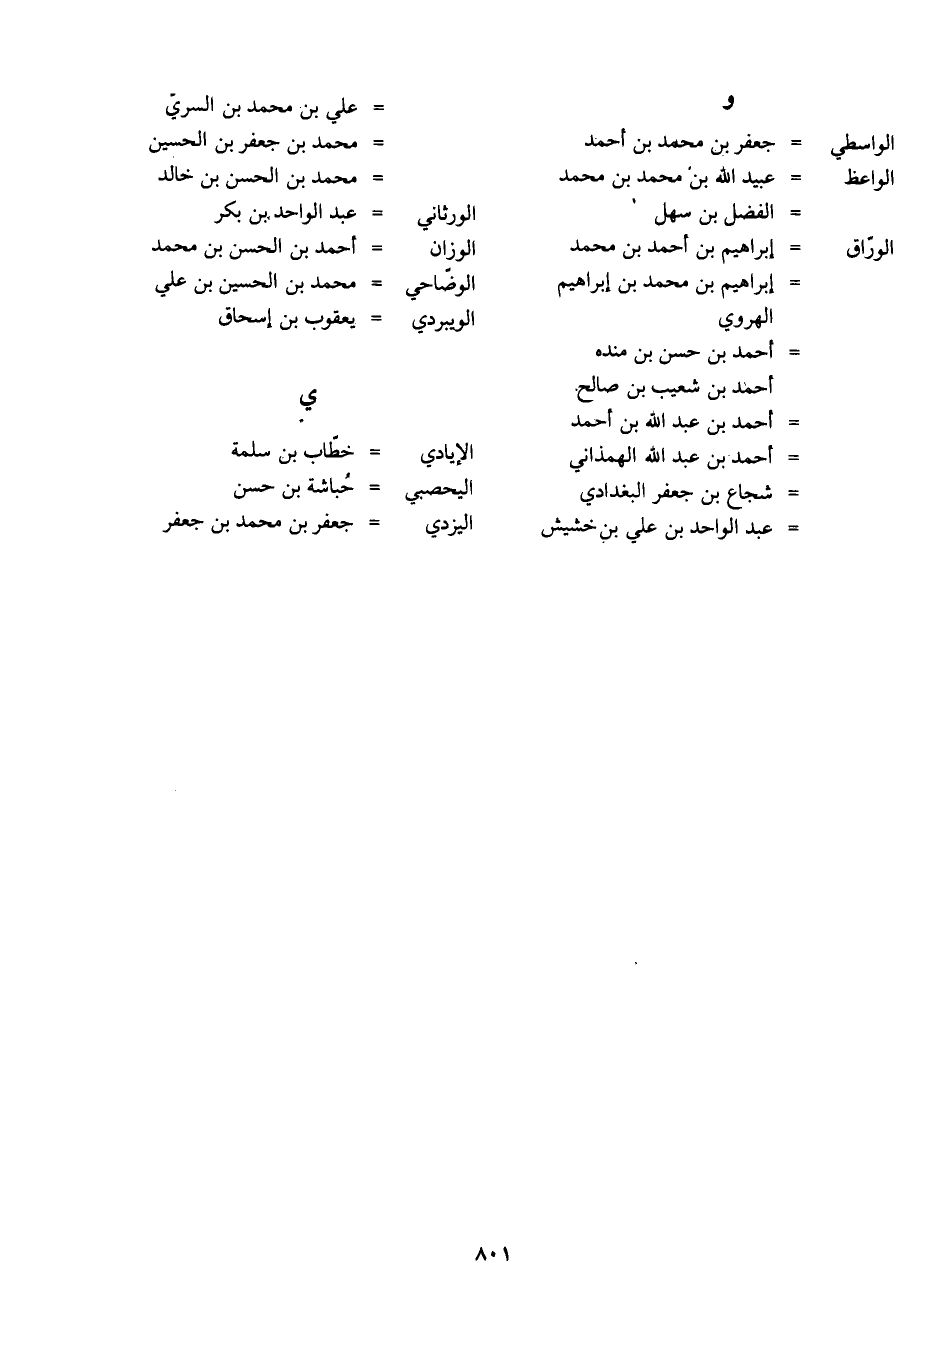 و
الواسطي = جعفر بن محمد بن أحمد
الواعظ = عبيد الله بن محمد بن محمد
= الفضل بن سهل
الورّاق = إبراهيم بن أحمد بن محمد
= إبراهيم بن محمد بن إبراهيم
الهروي
= أحمد بن حسن بن منده
أحمد بن شعيب بن صالح
= أحمد بن عبد الله بن أحمد
= أحمد بن عبد الله الهمذاني
= شجاع بن جعفر البغدادي
= عبد الواحد بن علي بن خشيش
= علي بن محمد بن السريّ
= محمد بن جعفر بن الحسين
= محمد بن الحسن بن خالد
الورثاني = عبد الواحد بن بكر
الوزان = أحمد بن الحسن بن محمد
الوضّاحي = محمد بن الحسين بن علي
الويبردي = يعقوب بن إسحاق
ي
الإيادي = خطّاب بن سلمة
اليحصبي = حُباشة بن حسن
اليزدي = جعفر بن محمد بن جعفر
٨٠١